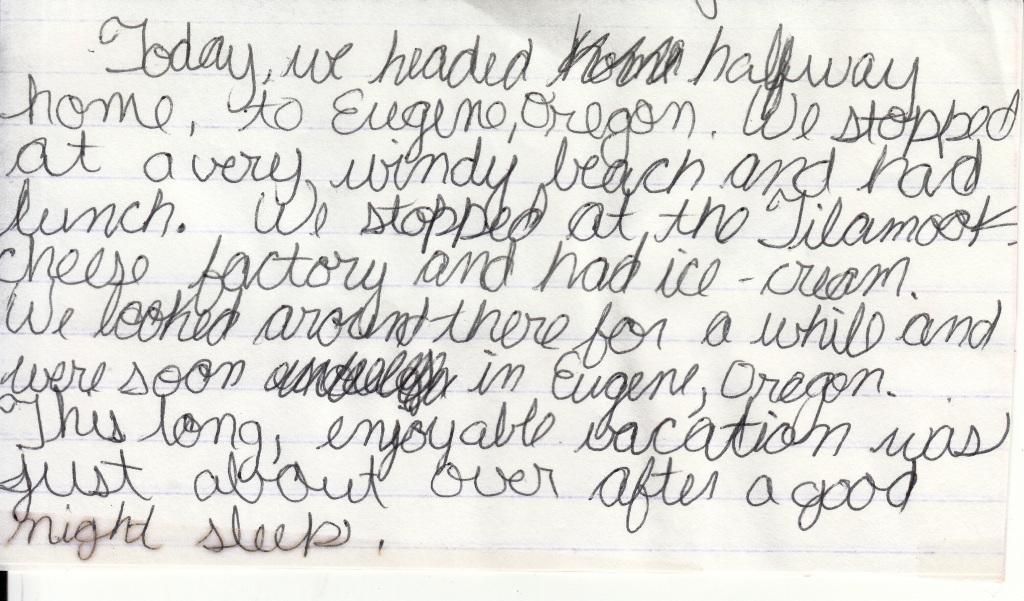 Today, we headed halfway
home, to Eugene, Oregon. We stopped
at a very windy beach and had
lunch. We stopped at the Tilamook
cheese factory and had ice-cream.
We looked around there for a while and
were soon in Eugene, Oregon.
This long, enjoyable vacation was
just about over after a good
night sleep.